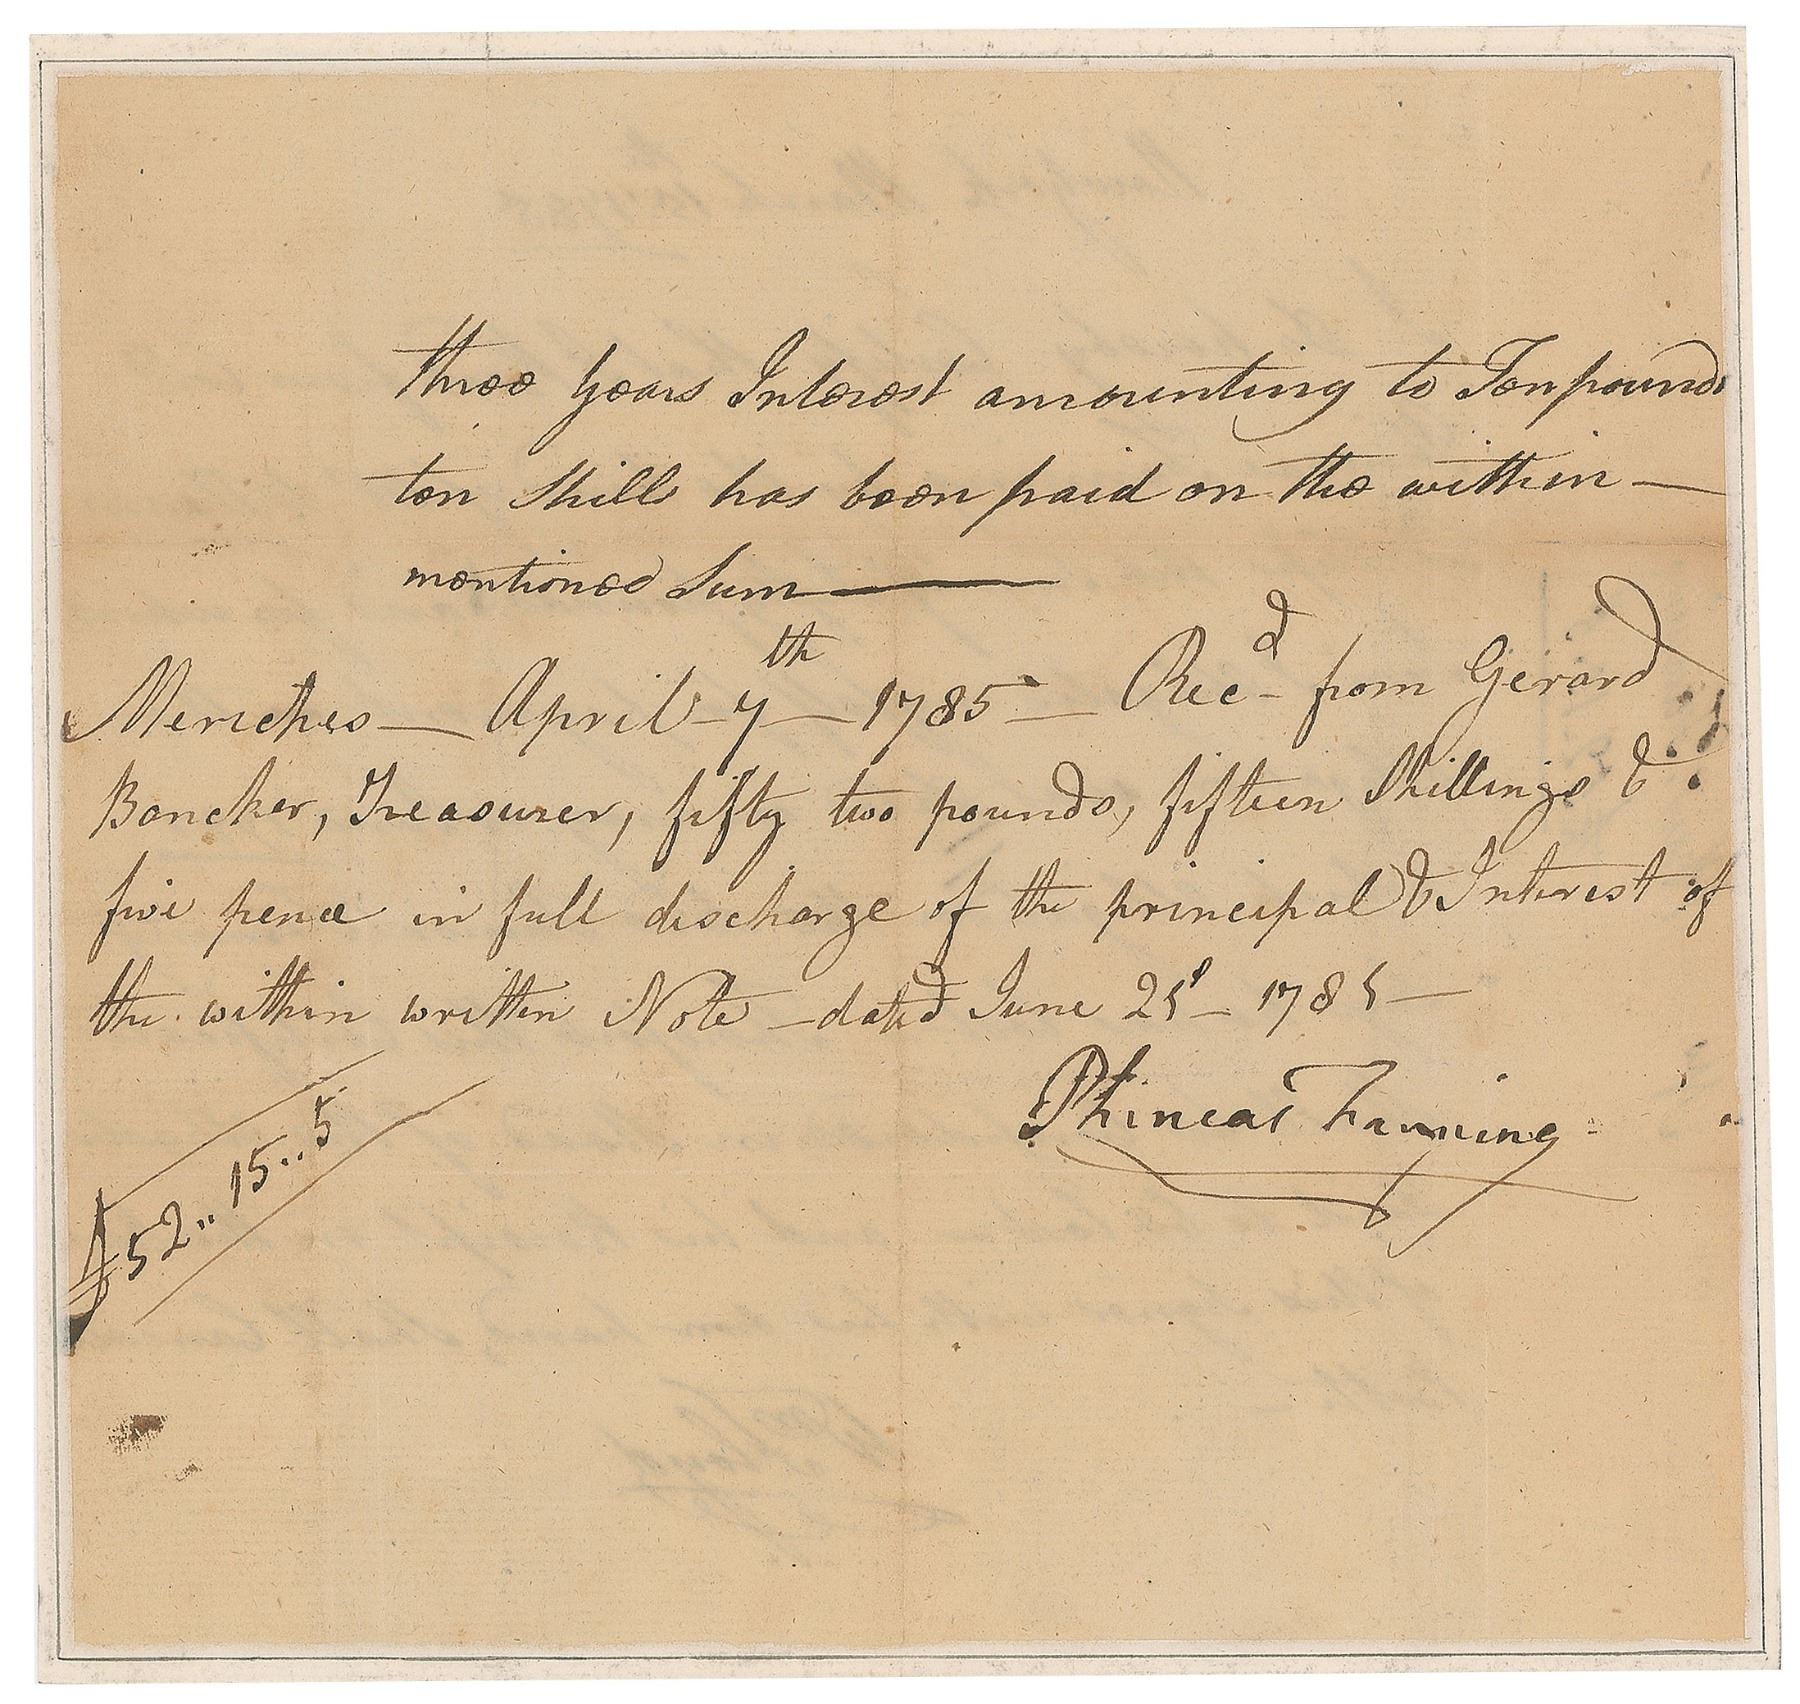 three years Interest amounting to Ten pounds
ten Shills has been paid on the within —
mentioned Sum —
Meriches — April 7th 1785 — Recd from Gerard
Bancker, Treasurer, fifty two pounds, fifteen Shillings &
five pence in full discharge of the principal & Interest of
the within written Note — dated June 21st — 1781 —
Phineas Fanning
£52.. 15.. 5